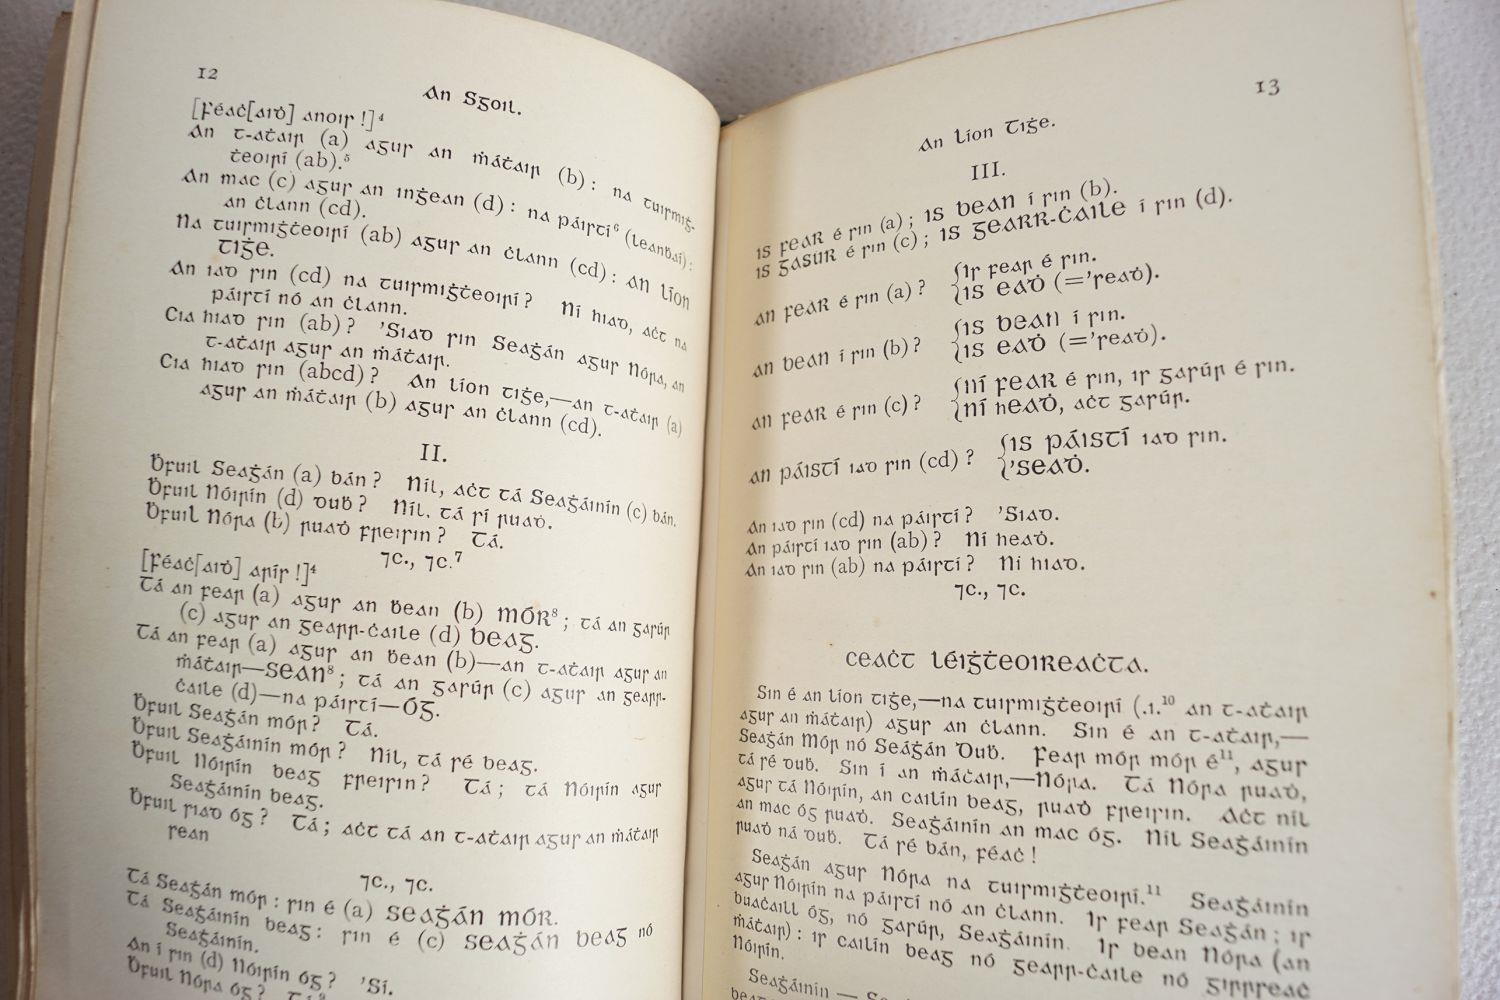 12
An Sgoil.
[Féaċ[aiḋ] anois !]⁴
An t-aṫair (a) agus an ṁáṫair (b) : na tuismiġ-
ṫeoirí (ab).⁵
An mac (c) agus an inġean (d) : na páistí⁶ (leanḃaí) :
an ċlann (cd).
Na tuismiġṫeoirí (ab) agus an ċlann (cd) : an líon
tiġe.
An iad sin (cd) na tuismiġṫeoirí ? Ní hiad, aċt na
páistí nó an ċlann.
Cia hiad sin (ab) ? 'Siad sin Seaġán agus Nóra, an
t-aṫair agus an ṁáṫair.
Cia hiad sin (abcd) ? An líon tiġe,—an t-aṫair (a)
agus an ṁáṫair (b) agus an ċlann (cd).
II.
Ḃfuil Seaġán (a) bán ? Níl, aċt tá Seaġáinín (c) bán.
Ḃfuil Nóirín (d) duḃ ? Níl. tá sí ruaḋ.
Ḃfuil Nóra (b) ruaḋ freisin ? Tá.
⁊c., ⁊c.⁷
[Féaċ[aiḋ] arís !]⁴
Tá an fear (a) agus an ḃean (b) MÓR⁸ ; tá an gasúr
(c) agus an gearr-ċaile (d) BEAG.
Tá an fear (a) agus an ḃean (b)—an t-aṫair agus an
ṁáṫair—SEAN⁸ ; tá an gasúr (c) agus an gearr-
ċaile (d)—na páistí—ÓG.
Ḃfuil Seaġán mór ? Tá.
Ḃfuil Seaġáinín mór ? Níl, tá sé beag.
Ḃfuil Nóirín beag freisin ? Tá ; tá Nóirín agus
Seaġáinín beag.
Ḃfuil siad óg ? Tá ; aċt tá an t-aṫair agus an ṁáṫair
sean
⁊c., ⁊c.
Tá Seaġán mór : sin é (a) SEAĠÁN MÓR.
Tá Seaġáinín beag : sin é (c) SEAĠÁN BEAG nó
Seaġáinín.
An í sin (d) Nóirín óg ? 'Sí.
Ḃfuil Nóra óg ? Tá⁹
13
An Líon Tiġe.
III.
IS FEAR é sin (a) ; IS BEAN í sin (b).
IS GASÚR é sin (c) ; IS GEARR-ĊAILE í sin (d).
AN FEAR é sin (a) ? {Is fear é sin.
{IS EAḊ (='seaḋ).
AN BEAN í sin (b) ? {IS BEAN í sin.
{IS EAḊ (='seaḋ).
AN FEAR é sin (c) ? {NÍ FEAR é sin, is gasúr é sin.
{NÍ hEAḊ, aċt gasúr.
AN PÁISTÍ iad sin (cd) ? {IS PÁISTÍ iad sin.
{'SEAḊ.
An iad sin (cd) na páistí ? 'Siad.
An páistí iad sin (ab) ? Ní heaḋ.
An iad sin (ab) na páistí ? Ní hiad.
⁊c., ⁊c.
CEAĊT LÉIĠṪEOIREAĊTA.
Sin é an líon tiġe,—na tuismiġṫeoirí (.i.¹⁰ an t-aṫair
agus an ṁáṫair) agus an ċlann. Sin é an t-aṫair,—
Seaġán Mór nó Seáġán Duḃ. Fear mór mór é¹¹, agus
tá sé duḃ. Sin í an ṁáṫair,—Nóra. Tá Nóra ruaḋ,
agus tá Nóirín, an cailín beag, ruaḋ freisin. Aċt níl
an mac óg ruaḋ. Seaġáinín an mac óg. Níl Seaġáinín
ruaḋ ná duḃ. Tá sé bán, féaċ !
Seaġán agus Nóra na tuismiġṫeoirí.¹¹ Seaġáinín
agus Nóirín na páistí nó an ċlann. Is fear Seaġán ; is
buaċaill óg, nó gasúr, Seaġáinín. Is bean Nóra (an
ṁáṫair) : is cailín beag nó gearr-ċaile nó girrseaċ
Nóirín.
Seaġáinín —